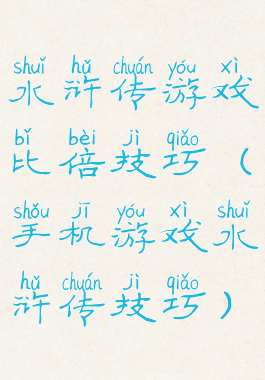 shuǐ hǔ chuán yóu xì
水浒传游戏
bǐ bèi jì qiǎo
比倍技巧（
shǒu jī yóu xì shuǐ
手机游戏水
hǔ chuán jì qiǎo
浒传技巧）